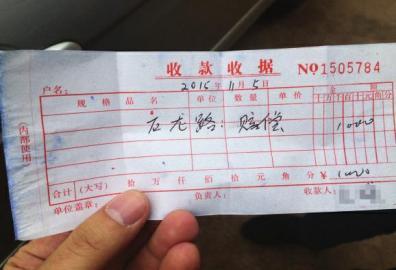 收款收据 NO 1505784
户名： 2015年11月5日
规格品名 单位 数量 单价 金额
十万千百十元角分
石龙路：赔偿 1000
合计（大写） 拾 万 仟 佰 拾 元 角 分 ¥ 1000
单位盖章： 负责人： 收款人：
（内部使用）